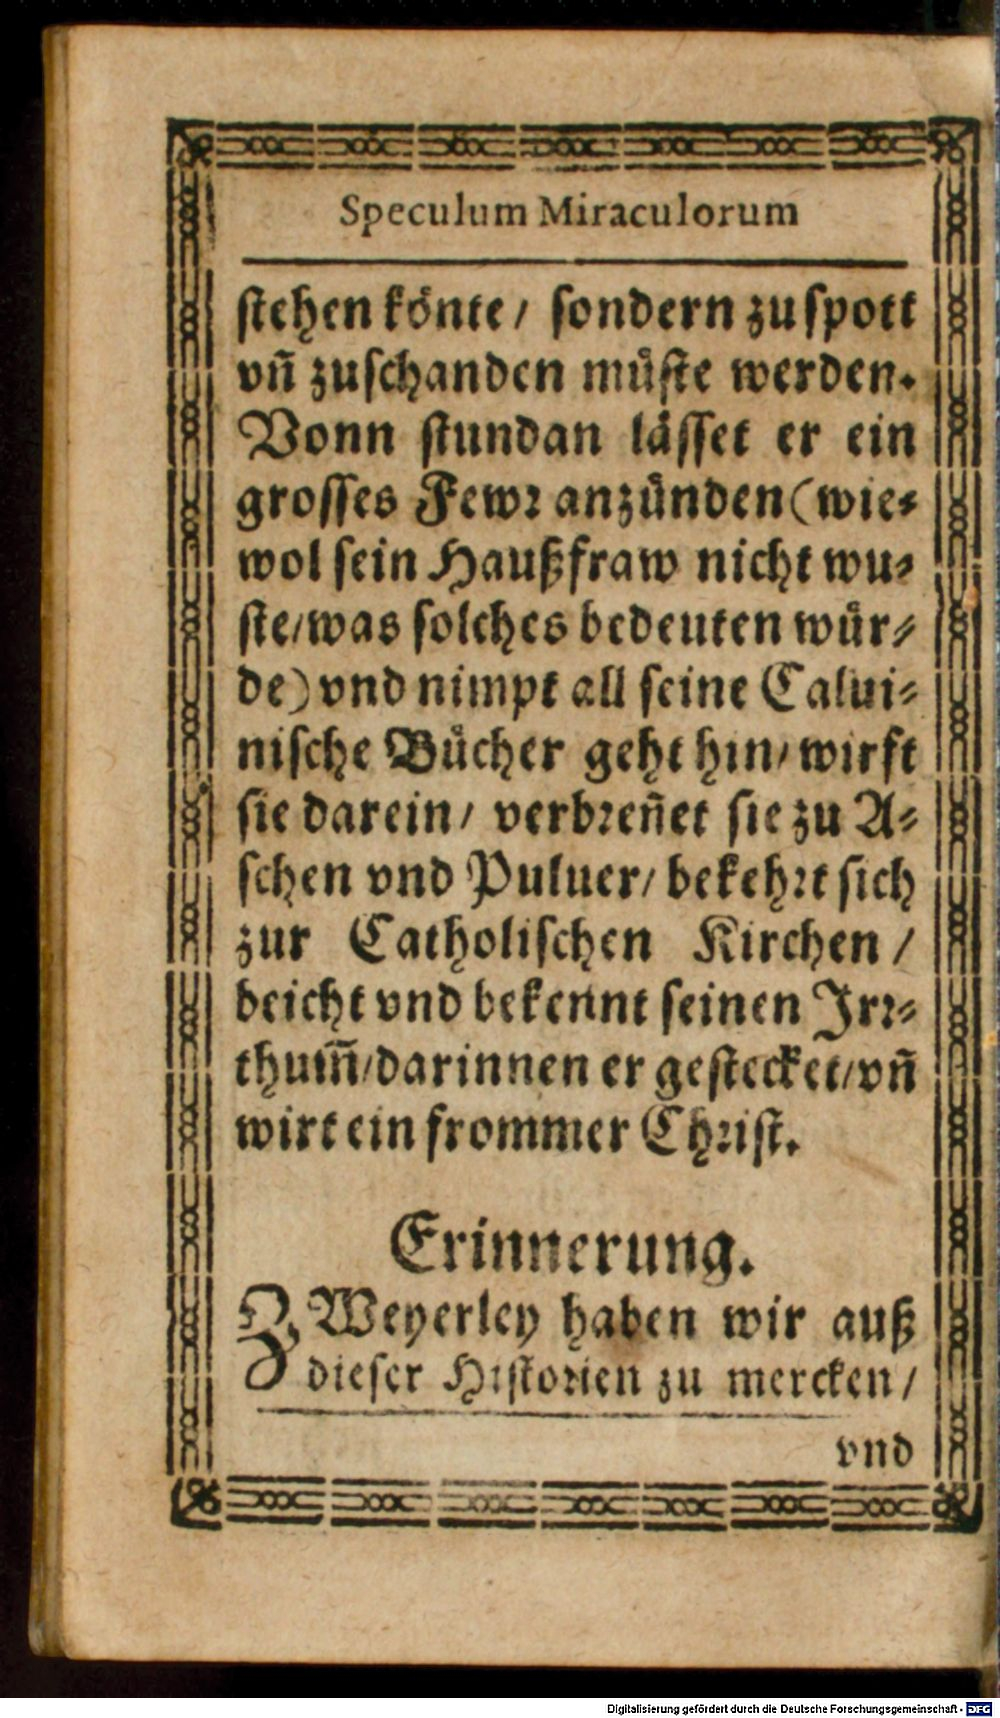 Speculum Miraculorum
stehen könte/ sondern zu spott
vñ zuschanden müste werden.
Vonn stundan lässet er ein
grosses Fewr anzünden (wie-
wol sein Haußfraw nicht wu-
ste/was solches bedeuten wür-
de) vnd nimpt all seine Calui-
nische Bücher geht hin/ wirft
sie darein/ verbreñet sie zu A-
schen vnd Puluer/ bekehrt sich
zur Catholischen Kirchen/
beicht vnd bekennt seinen Irr-
thum̃/darinnen er gestecket/vñ
wirt ein frommer Christ.
Erinnerung.
ZWeyerley haben wir auß
dieser Historien zu mercken/
vnd
Digitalisierung gefördert durch die Deutsche Forschungsgemeinschaft - DFG